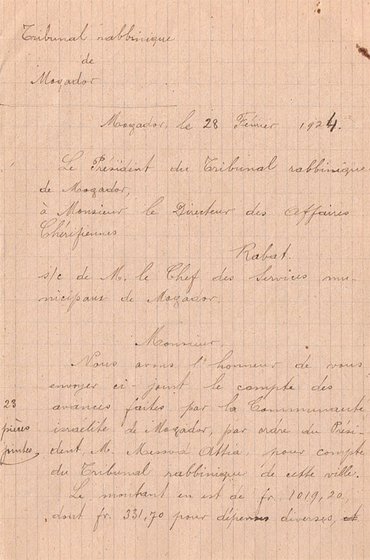 Tribunal rabbinique
de
Mogador
Mogador, le 28 Février 1924.
Le Président du Tribunal rabbinique
de Mogador,
à Monsieur le Directeur des Affaires
Chérifiennes
Rabat.
s/c de M. le Chef des Services mu-
nicipaux de Mogador.
Monsieur,
Nous avons l'honneur de vous
envoyer ci-joint le compte des
avances faites par la Communauté
israëlite de Mogador, par ordre du Prési-
dent M. Messod Attia, pour compte
du Tribunal rabbinique de cette ville.
28
pièces
jointes
Le montant en est de fr. 1019,20,
dont fr. 331,70 pour dépenses diverses,